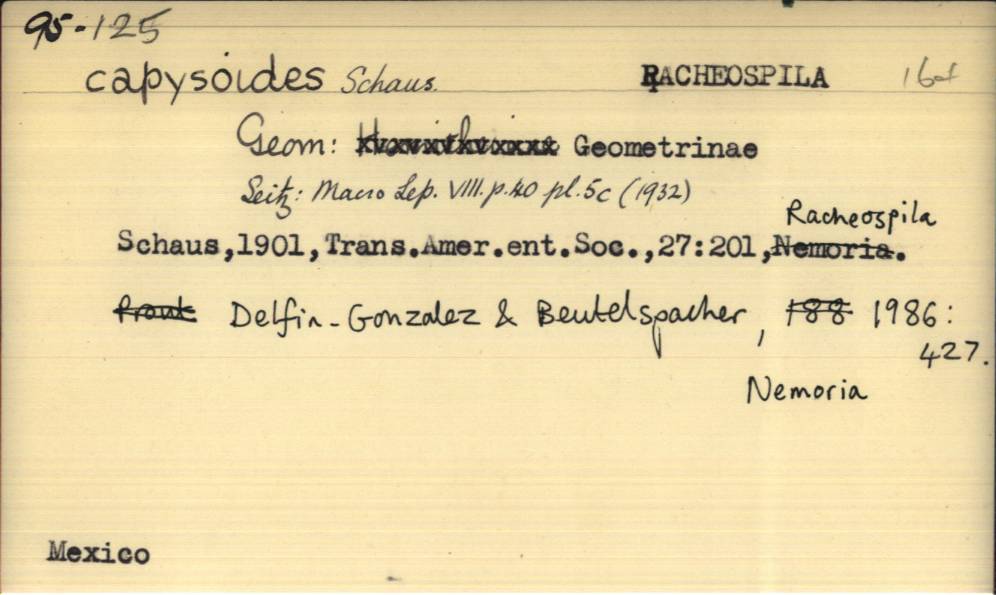 95-125
capysoides Schaus. RACHEOSPILA
Geom: Geometrinae
Seitz: Macro Lep. VIII. p.40 pl.5c (1932)
Racheospila
Schaus,1901,Trans.Amer.ent.Soc.,27:201,Nemoria.
Prout Delfin-Gonzalez & Beutelspacher, 188 1986:
427.
Nemoria
Mexico